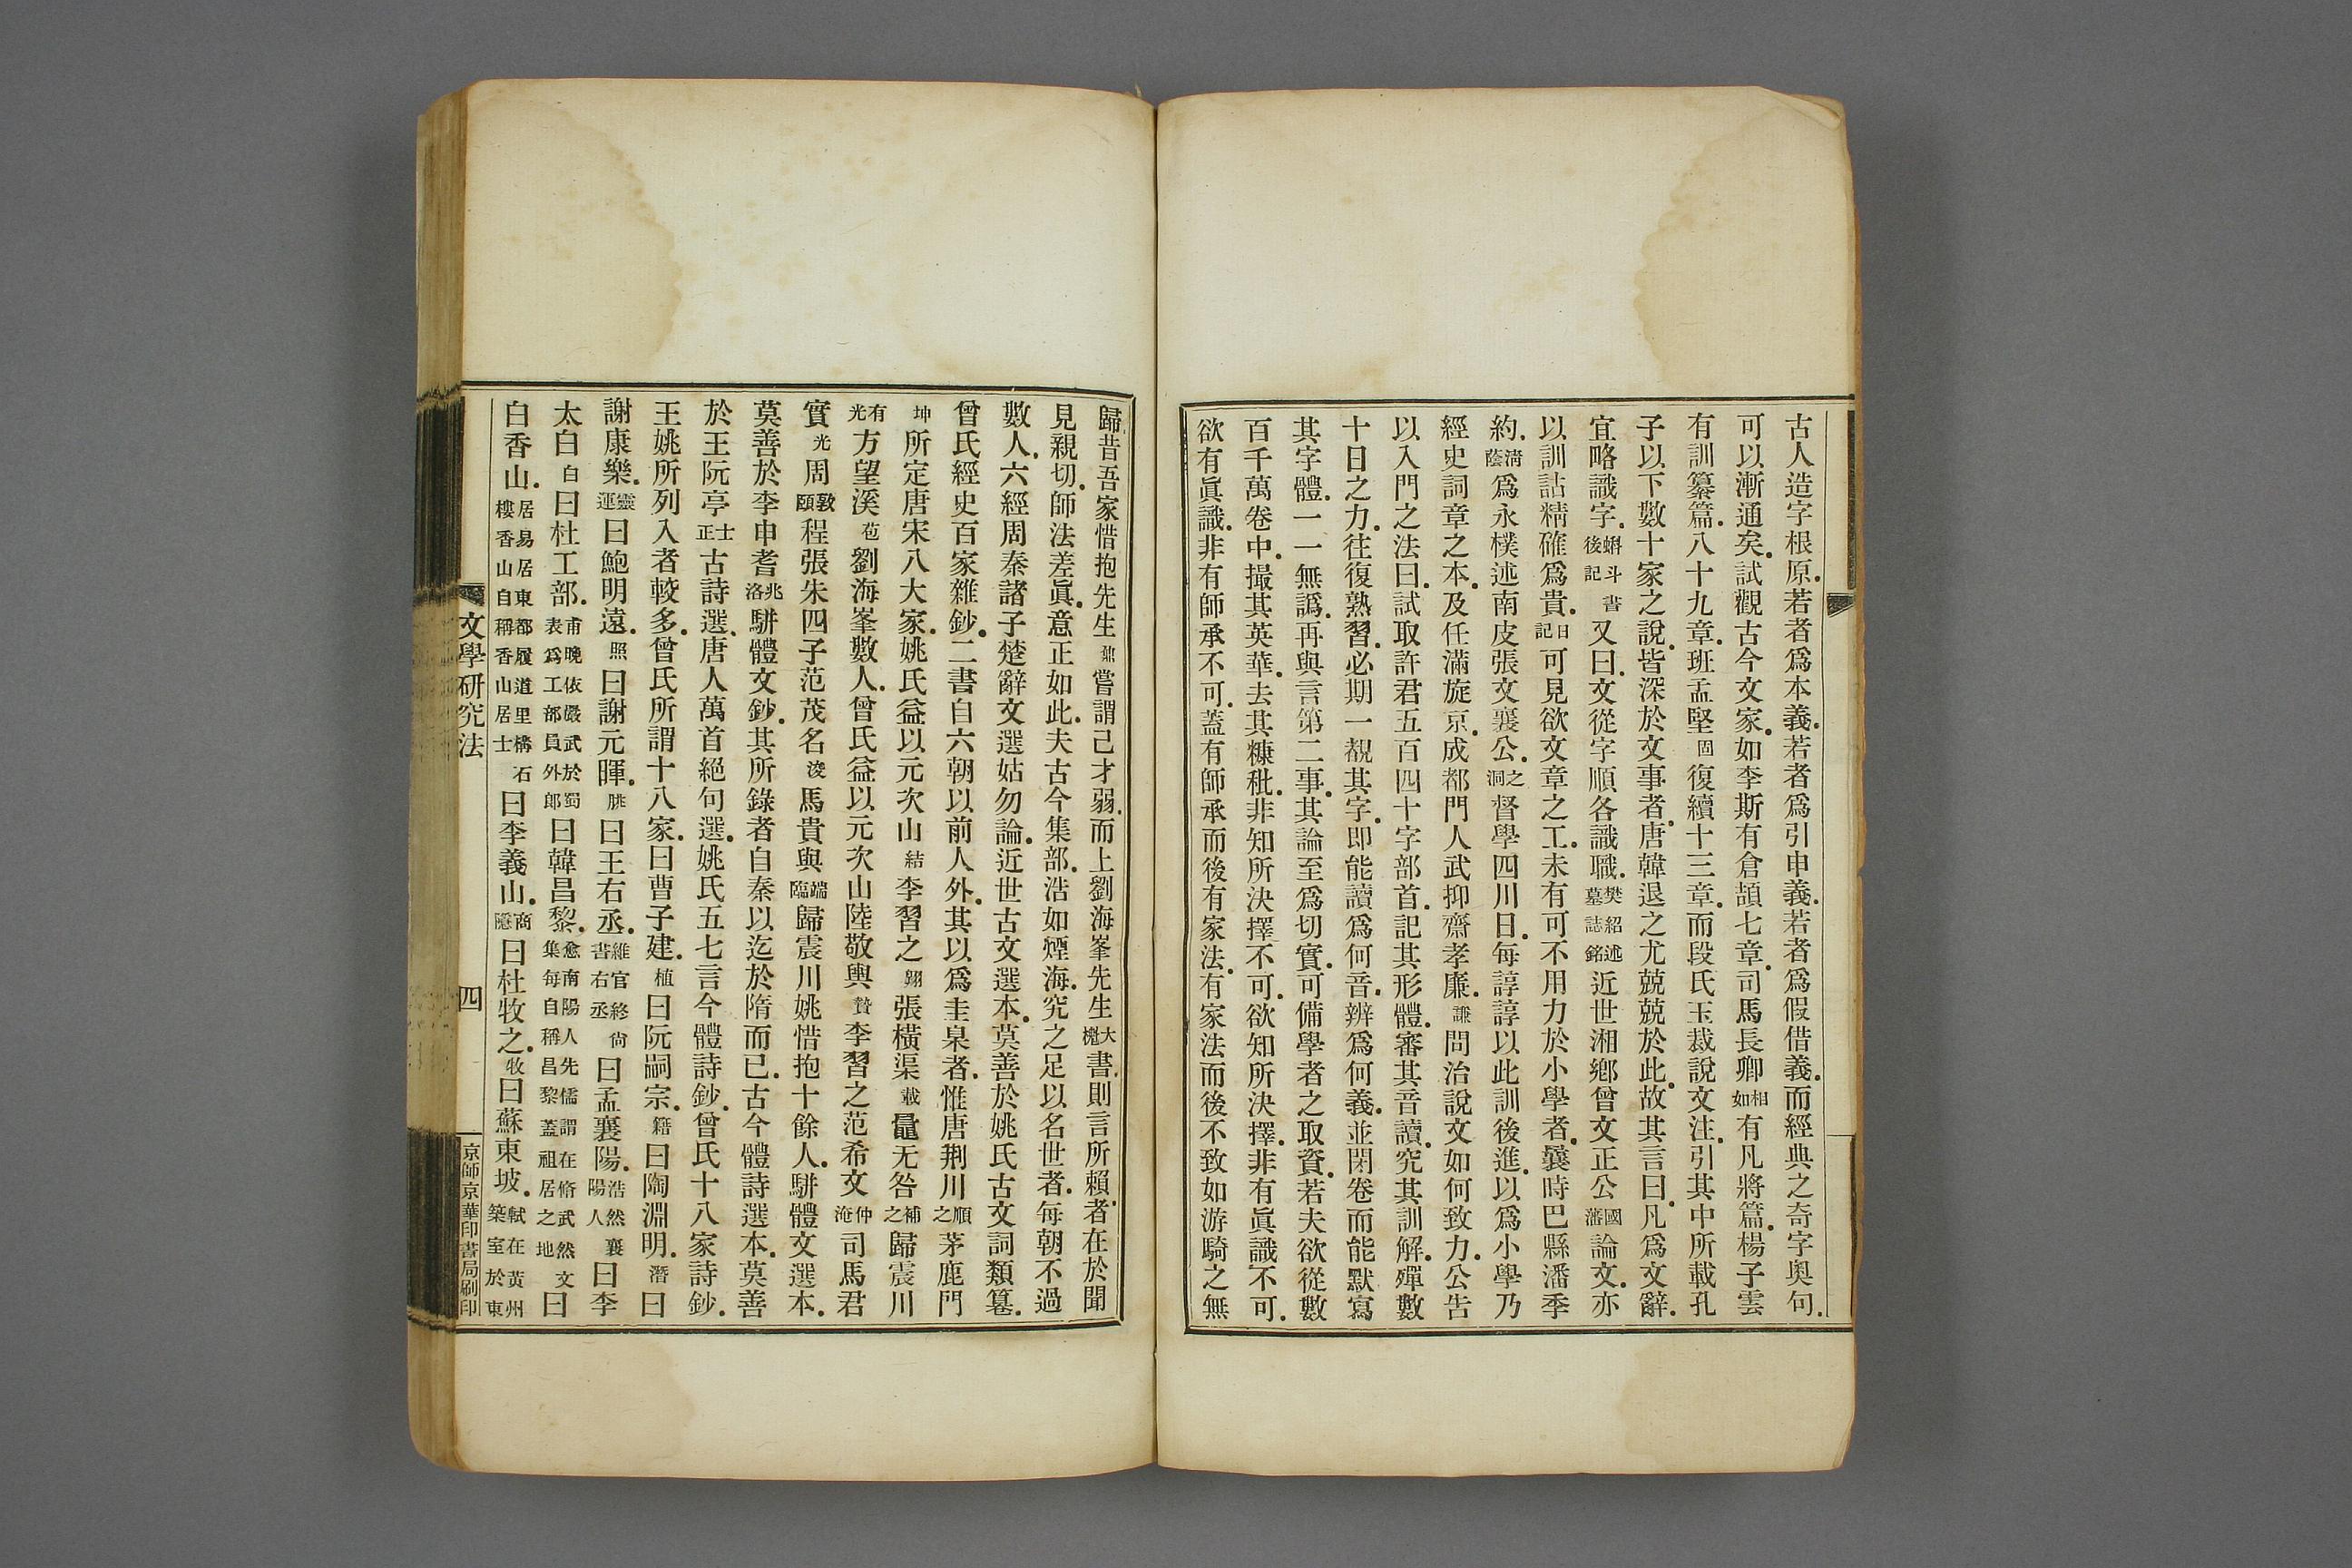 古人造字根原若者爲本義若者爲引申義若者爲假借義而經典之奇字奥句
可以漸通矣試觀古今文家如李斯有倉頡七章司馬長卿相如有凡將篇楊子雲
有訓纂篇八十九章班孟堅固復續十三章而段氏玉裁說文注引其中所載孔
子以下數十家之說皆深於文事者唐韓退之尤兢兢於此故其言曰凡爲文辭
宜略識字蝌斗書後記又曰文從字順各識職樊紹述墓誌銘近世湘鄉曾文正公國藩論文亦
以訓詁精確爲貴日記可見欲文章之工未有可不用力於小學者曩時巴縣潘季
約清蔭爲永樸述南皮張文襄公之洞督學四川日每諄諄以此訓後進以爲小學乃
經史詞章之本及任滿旋京成都門人武抑齋孝廉謙問治說文如何致力公告
以入門之法曰試取許君五百四十字部首記其形體審其音讀究其訓解殫數
十日之力往復熟習必期一覩其字即能讀爲何音辨爲何義並閉卷而能默寫
其字體一一無譌再與言第二事其論至爲切實可備學者之取資若夫欲從數
百千萬卷中撮其英華去其糠秕非知所決擇不可欲知所決擇非有眞識不可
欲有眞識非有師承不可蓋有師承而後有家法有家法而後不致如游騎之無
歸昔吾家惜抱先生鼐嘗謂己才弱而上劉海峯先生大櫆書則言所賴者在於聞
見親切師法差眞意正如此夫古今集部浩如煙海究之足以名世者每朝不過
數人六經周秦諸子楚辭文選姑勿論近世古文選本莫善於姚氏古文詞類篹
曾氏經史百家雜鈔二書自六朝以前人外其以爲圭臬者惟唐荆川順之茅鹿門
坤所定唐宋八大家姚氏益以元次山結李習之翺張橫渠載鼂无咎補之歸震川
有光方望溪苞劉海峯數人曾氏益以元次山陸敬輿贄李習之范希文仲淹司馬君
實光周敦頤程張朱四子范茂名浚馬貴與端臨歸震川姚惜抱十餘人駢體文選本
莫善於李申耆兆洛駢體文鈔其所錄者自秦以迄於隋而已古今體詩選本莫善
於王阮亭士正古詩選唐人萬首絕句選姚氏五七言今體詩鈔曾氏十八家詩鈔
王姚所列入者較多曾氏所謂十八家曰曹子建植曰阮嗣宗籍曰陶淵明潛曰
謝康樂靈運曰鮑明遠照曰謝元暉朓曰王右丞維官終尙書右丞曰孟襄陽浩然襄陽人曰李
太白白曰杜工部甫晚依嚴武於蜀表爲工部員外郎曰韓昌黎愈南陽人先儒謂在脩武然文集每自稱昌黎蓋祖居之地曰
白香山居易居東都履道里構石樓香山自稱香山居士曰李義山商隱曰杜牧之牧曰蘇東坡軾在黃州築室於東
文學研究法
四
京師京華印書局刷印